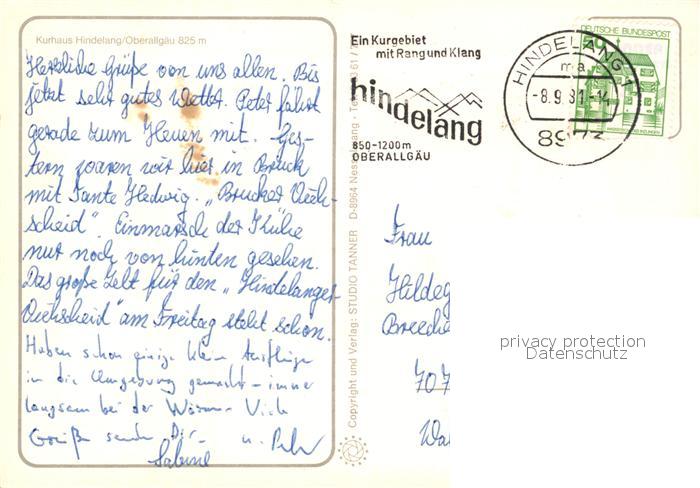 Kurhaus Hindelang/Oberallgäu 825 m
Herzliche Grüße von uns allen. Bis
jetzt sehr gutes Wetter. Peter fährt
gerade zum Heuen mit. Ges-
tern waren wir hier in Bruck
mit Tante Hedwig. „Brucker Vieh-
scheid". Einmarsch der Kühe
nur noch von hinten gesehen.
Das große Zelt für den „Hindelanger
Viehscheid" am Freitag steht schon.
Haben schon einige kleine Ausflüge
in die Umgebung gemacht – immer
langsam bei der Wärme. Viele
Grüße senden Dir
Sabine u. Peter
Copyright und Verlag: STUDIO TANNER D-8964 Nesselwang - Tel. 0 83 61 /
Ein Kurgebiet
mit Rang und Klang
hindelang
850-1200m
OBERALLGÄU
HINDELANG 1
ma
-8.9.81-14
8973
DEUTSCHE BUNDESPOST
50
Frau
Hildeg
Breeche
707
Wa
privacy protection
Datenschutz